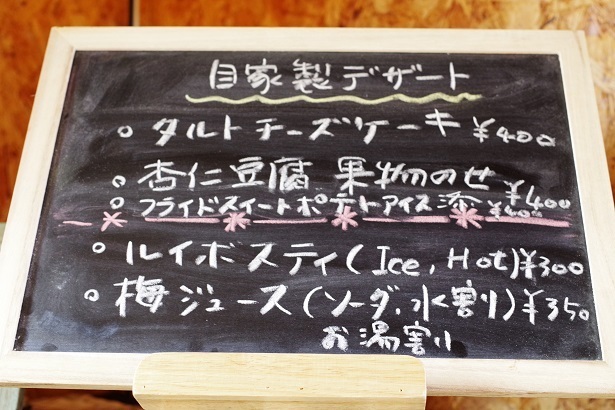 自家製デザート
。タルトチーズケーキ ¥400
。杏仁豆腐 果物のせ ¥400
。フライドスイートポテトアイス添 ¥400
。ルイボスティ(Ice, Hot)¥300
。梅ジュース(ソーダ.水割り)¥350
お湯割り